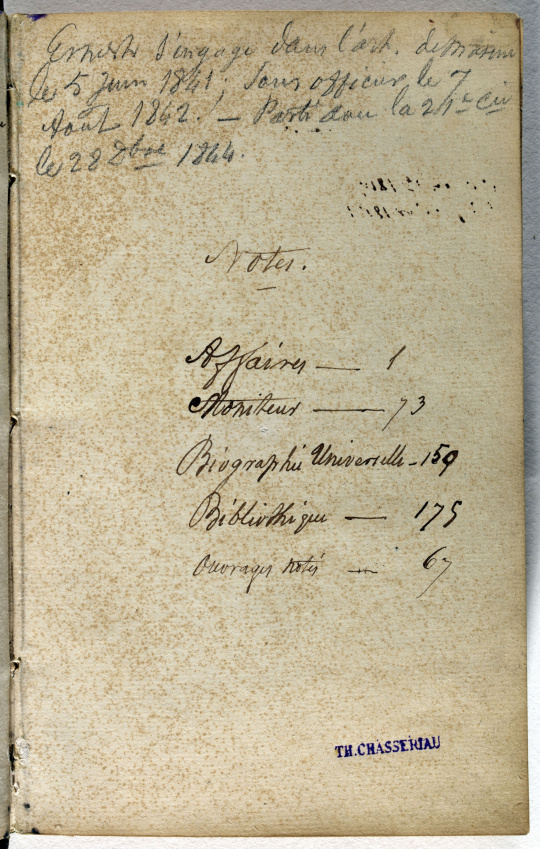 Ernest s'engage dans l'art. de marine
le 5 Juin 1841; Sous officier le 7
Août 1842. — Parti dans la 21e Cie
le 28 8bre 1844.
Notes.
Affaires — 1
Moniteur — 73
Biographie Universelle - 159
Bibliothèque — 175
Ouvrages notés — 67
TH. CHASSERIAU